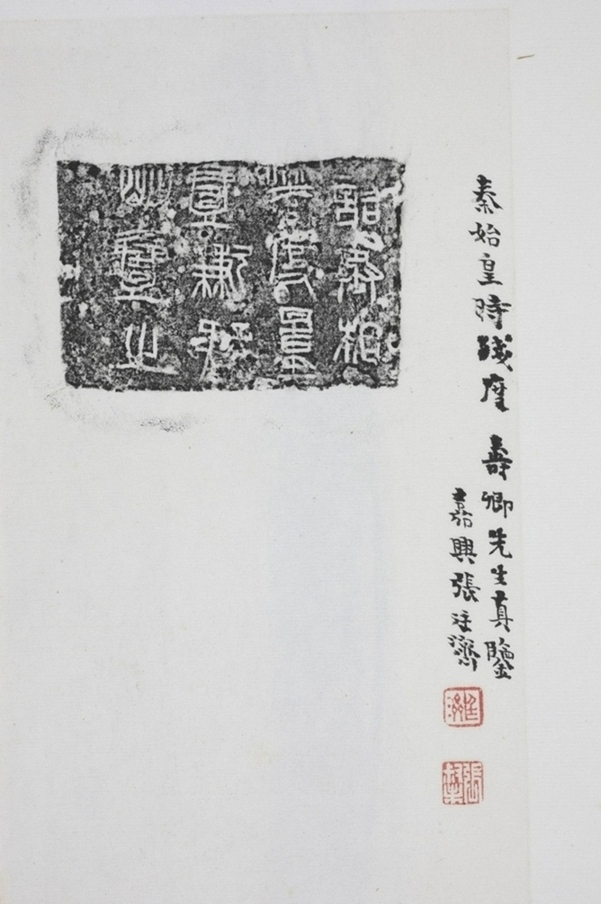 秦始皇時殘度 壽卿先生真鑒
嘉興張廷濟
詔丞相
灋度量
壹歉疑
明壹之
廷濟